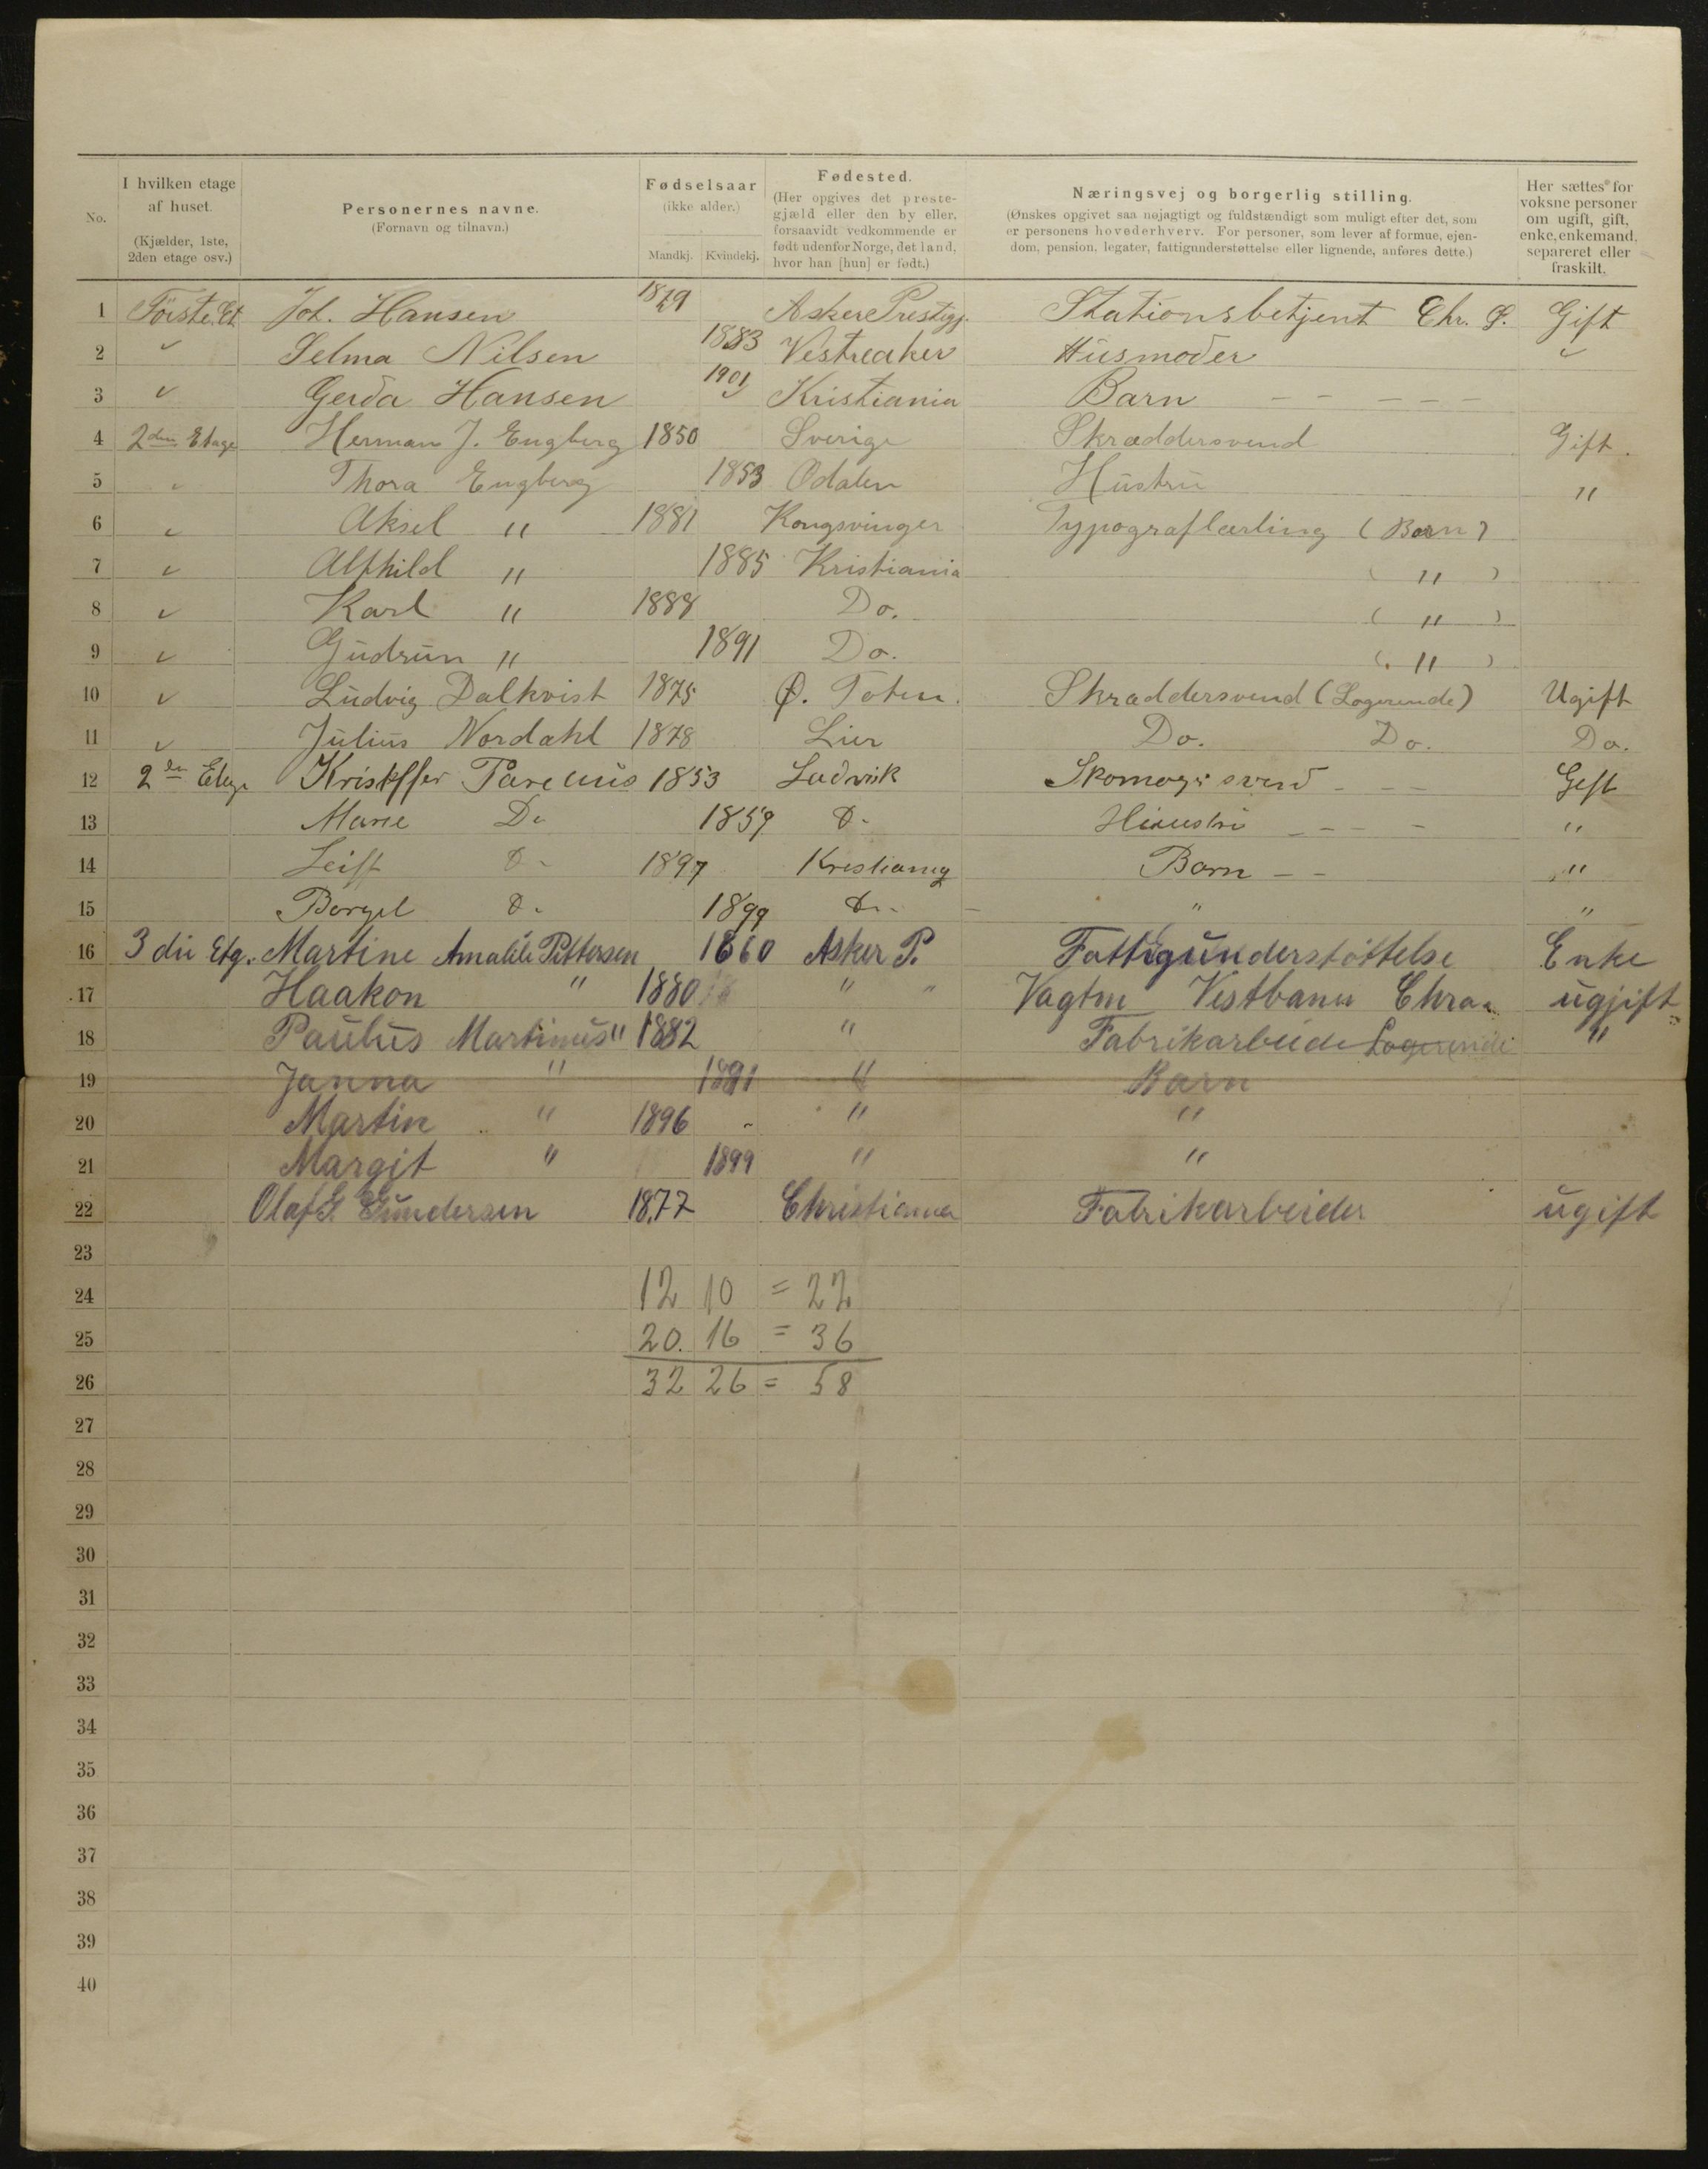 No.
I hvilken etage
af huset.
(Kjælder, 1ste,
2den etage osv.)
Personernes navne.
(Fornavn og tilnavn.)
Fødselsaar
(ikke alder.)
Mandkj. Kvindekj.
Fødested.
(Her opgives det preste-
gjæld eller den by eller,
forsaavidt vedkommende er
født udenfor Norge, det land,
hvor han [hun] er født.)
Næringsvej og borgerlig stilling.
(Ønskes opgivet saa nøjagtigt og fuldstændigt som muligt efter det, som
er personens hovederhverv. For personer, som lever af formue, ejen-
dom, pension, legater, fattigunderstøttelse eller lignende, anføres dette.)
Her sættes for
voksne personer
om ugift, gift,
enke, enkemand,
separeret eller
fraskilt.
1 Første Et Joh. Hansen 1879 Asker Prestgj. Stationsbetjent Chr. S. Gift
2 " Selma Nilsen 1883 Vestreaker Husmoder "
3 " Gerda Hansen 1901 Kristiania Barn - - - - -
4 2den Etage Herman J. Engberg 1850 Sverige Skræddersvend Gift.
5 " Thora Engberg 1853 Odalen Hustru "
6 " Aksel " 1881 Kongsvinger Typograflærling (Barn)
7 " Alfhild " 1885 Kristiania ( " )
8 " Karl " 1888 Do. ( " )
9 " Gudrun " 1891 Do. ( " )
10 " Ludvig Dalkvist 1875 Ø. Toten. Skræddersvend (Logerende) Ugift
11 " Julius Nordahl 1878 Lier Do. Do. Do.
12 2den Etage 1853 Skomagersvend - - - Gift
13 Marie Do 1859 Do - Hustru - - - - "
14 Leif Do - 1897 Kristiania Barn - - "
15 Do - 1899 Do - - " "
16 3die Etg. Martine Amalie Pettersen 1860 Asker P. Fattigunderstøttelse Enke
17 Haakon " 1880 " " Vagtm Vestbanen Chra. ugjift
18 Paulus Martinus " 1882 " Fabrikarbeide Logerende "
19 Janna " 1891 " Barn
20 Martin " 1896 " "
21 Margit " 1899 " "
22 Olaf G Gundersen 1877 Christiania Fabrikarbeider ugift
23
24 12 10 = 22
25 20. 16 = 36
26 32 26 = 58
27
28
29
30
31
32
33
34
35
36
37
38
39
40